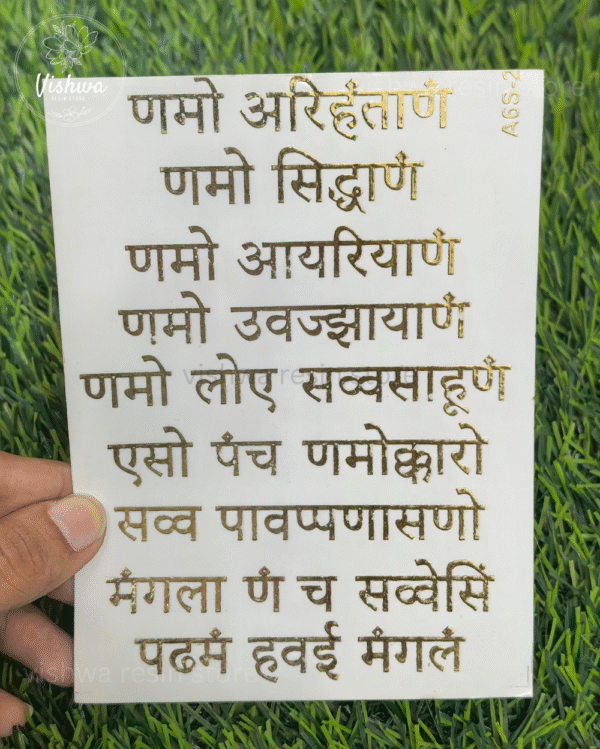 Vishwa
RESIN STORE
A6S-2
णमो अरिहंताणं
णमो सिद्धाणं
णमो आयरियाणं
णमो उवज्झायाणं
णमो लोए सव्वसाहूणं
vishwa resin store
एसो पंच णमोक्कारो
सव्व पावप्पणासणो
मंगला णं च सव्वेसिं
पढमं हवई मंगलं
vishwa resin store